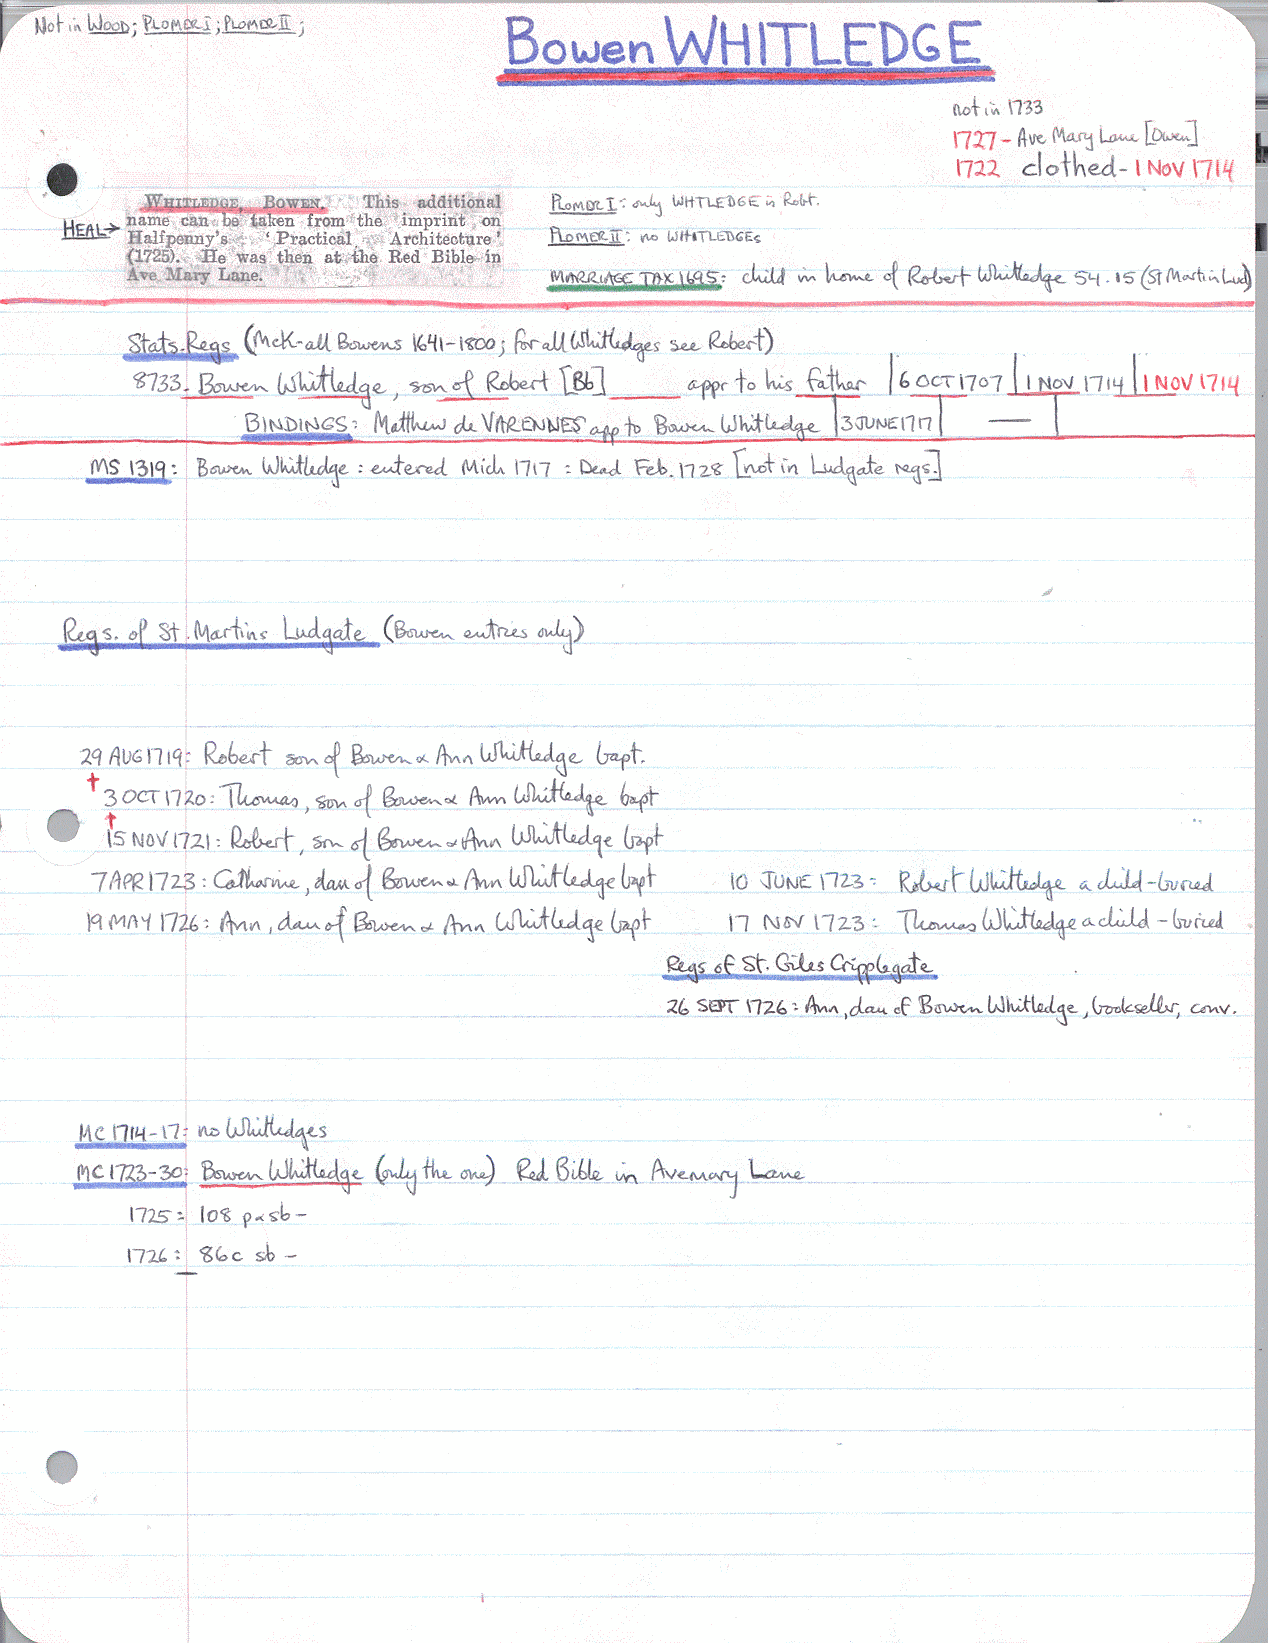 Not in WOOD; PLOMER I; PLOMER II;
Bowen WHITLEDGE
not in 1733
1727 - Ave Mary Lane [Owen]
1722 clothed - 1 NOV 1714
HEAL→
WHITLEDGE, BOWEN. This additional
name can be taken from the imprint on
Halfpenny's 'Practical Architecture'
(1725). He was then at the Red Bible in
Ave Mary Lane.
PLOMER I: only WHITLEDGE is Robt.
PLOMER II: no WHITLEDGEs
MARRIAGE TAX 1695: child in home of Robert Whitledge 54.15 (St Martin Lud)
Stats. Regs (McK-all Bowens 1641-1800; for all Whitledges see Robert)
8733. Bowen Whitledge, son of Robert [Bb] ____ appr to his father | 6 OCT 1707 | 1 NOV 1714 | 1 NOV 1714
BINDINGS: Matthew de VARENNES app to Bowen Whitledge | 3 JUNE 1717 | — |
MS 1319: Bowen Whitledge: entered Mich 1717: Dead Feb. 1728 [not in Ludgate regs.]
Regs. of St. Martins Ludgate (Bowen entries only)
29 AUG 1719: Robert son of Bowen & Ann Whitledge bapt.
† 3 OCT 1720: Thomas, son of Bowen & Ann Whitledge bapt
† 15 NOV 1721: Robert, son of Bowen & Ann Whitledge bapt
7 APR 1723: Catharine, dau of Bowen & Ann Whitledge bapt
10 JUNE 1723: Robert Whitledge a child - buried
19 MAY 1726: Ann, dau of Bowen & Ann Whitledge bapt
17 NOV 1723: Thomas Whitledge a child - buried
Regs of St. Giles Cripplegate
26 SEPT 1726: Ann, dau of Bowen Whitledge, bookseller, conv.
MC 1714-17: no Whitledges
MC 1723-30: Bowen Whitledge (only the one) Red Bible in Avemary Lane
1725: 108 p & sb -
1726: 86c sb -